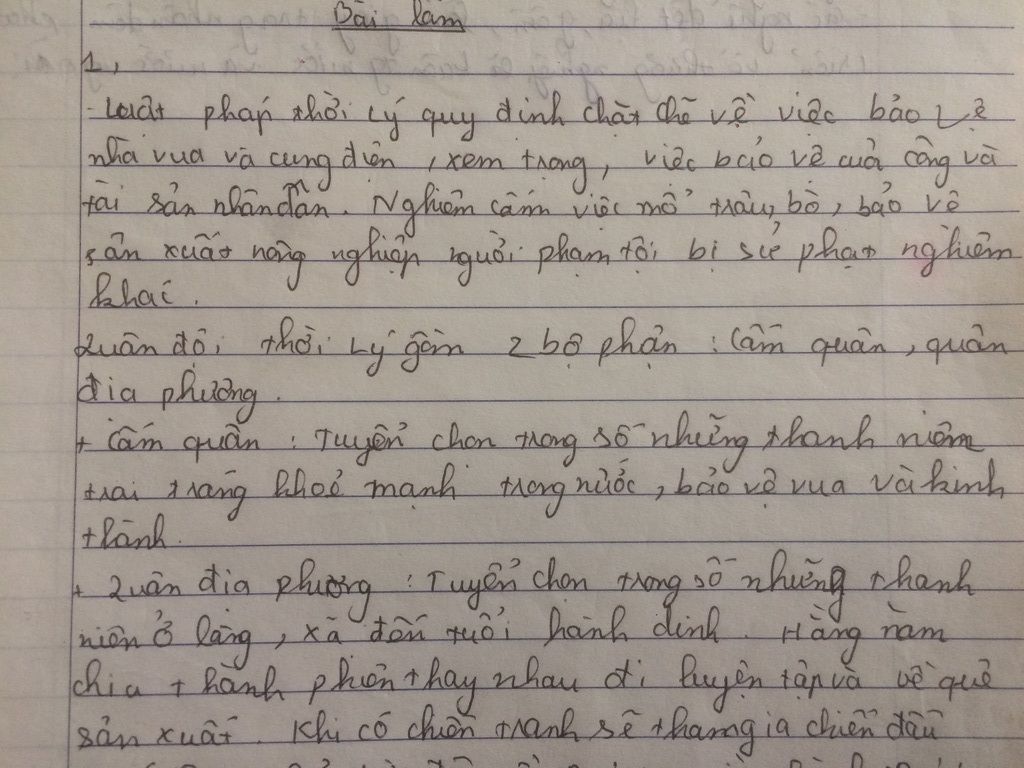 Bài làm
1,
- Luật pháp thời Lý quy định chặt chẽ về việc bảo vệ
nhà vua và cung điện, xem trọng, việc bảo vệ của công và
tài sản nhân dân. Nghiêm cấm việc mổ trâu, bò, bảo vệ
sản xuất nông nghiệp người phạm tội bị sử phạt nghiêm
khắc.
Quân đội thời Lý gồm 2 bộ phận : Cấm quân, quân
địa phương.
+ Cấm quân : Tuyển chọn trong số những thanh niên
trai tráng khoẻ mạnh trong nước, bảo vệ vua và kinh
thành.
+ Quân địa phương : Tuyển chọn trong số những thanh
niên ở làng, xã đến tuổi hành đinh. Hằng năm
chia thành phiên thay nhau đi luyện tập và về quê
sản xuất. Khi có chiến tranh sẽ tham gia chiến đấu